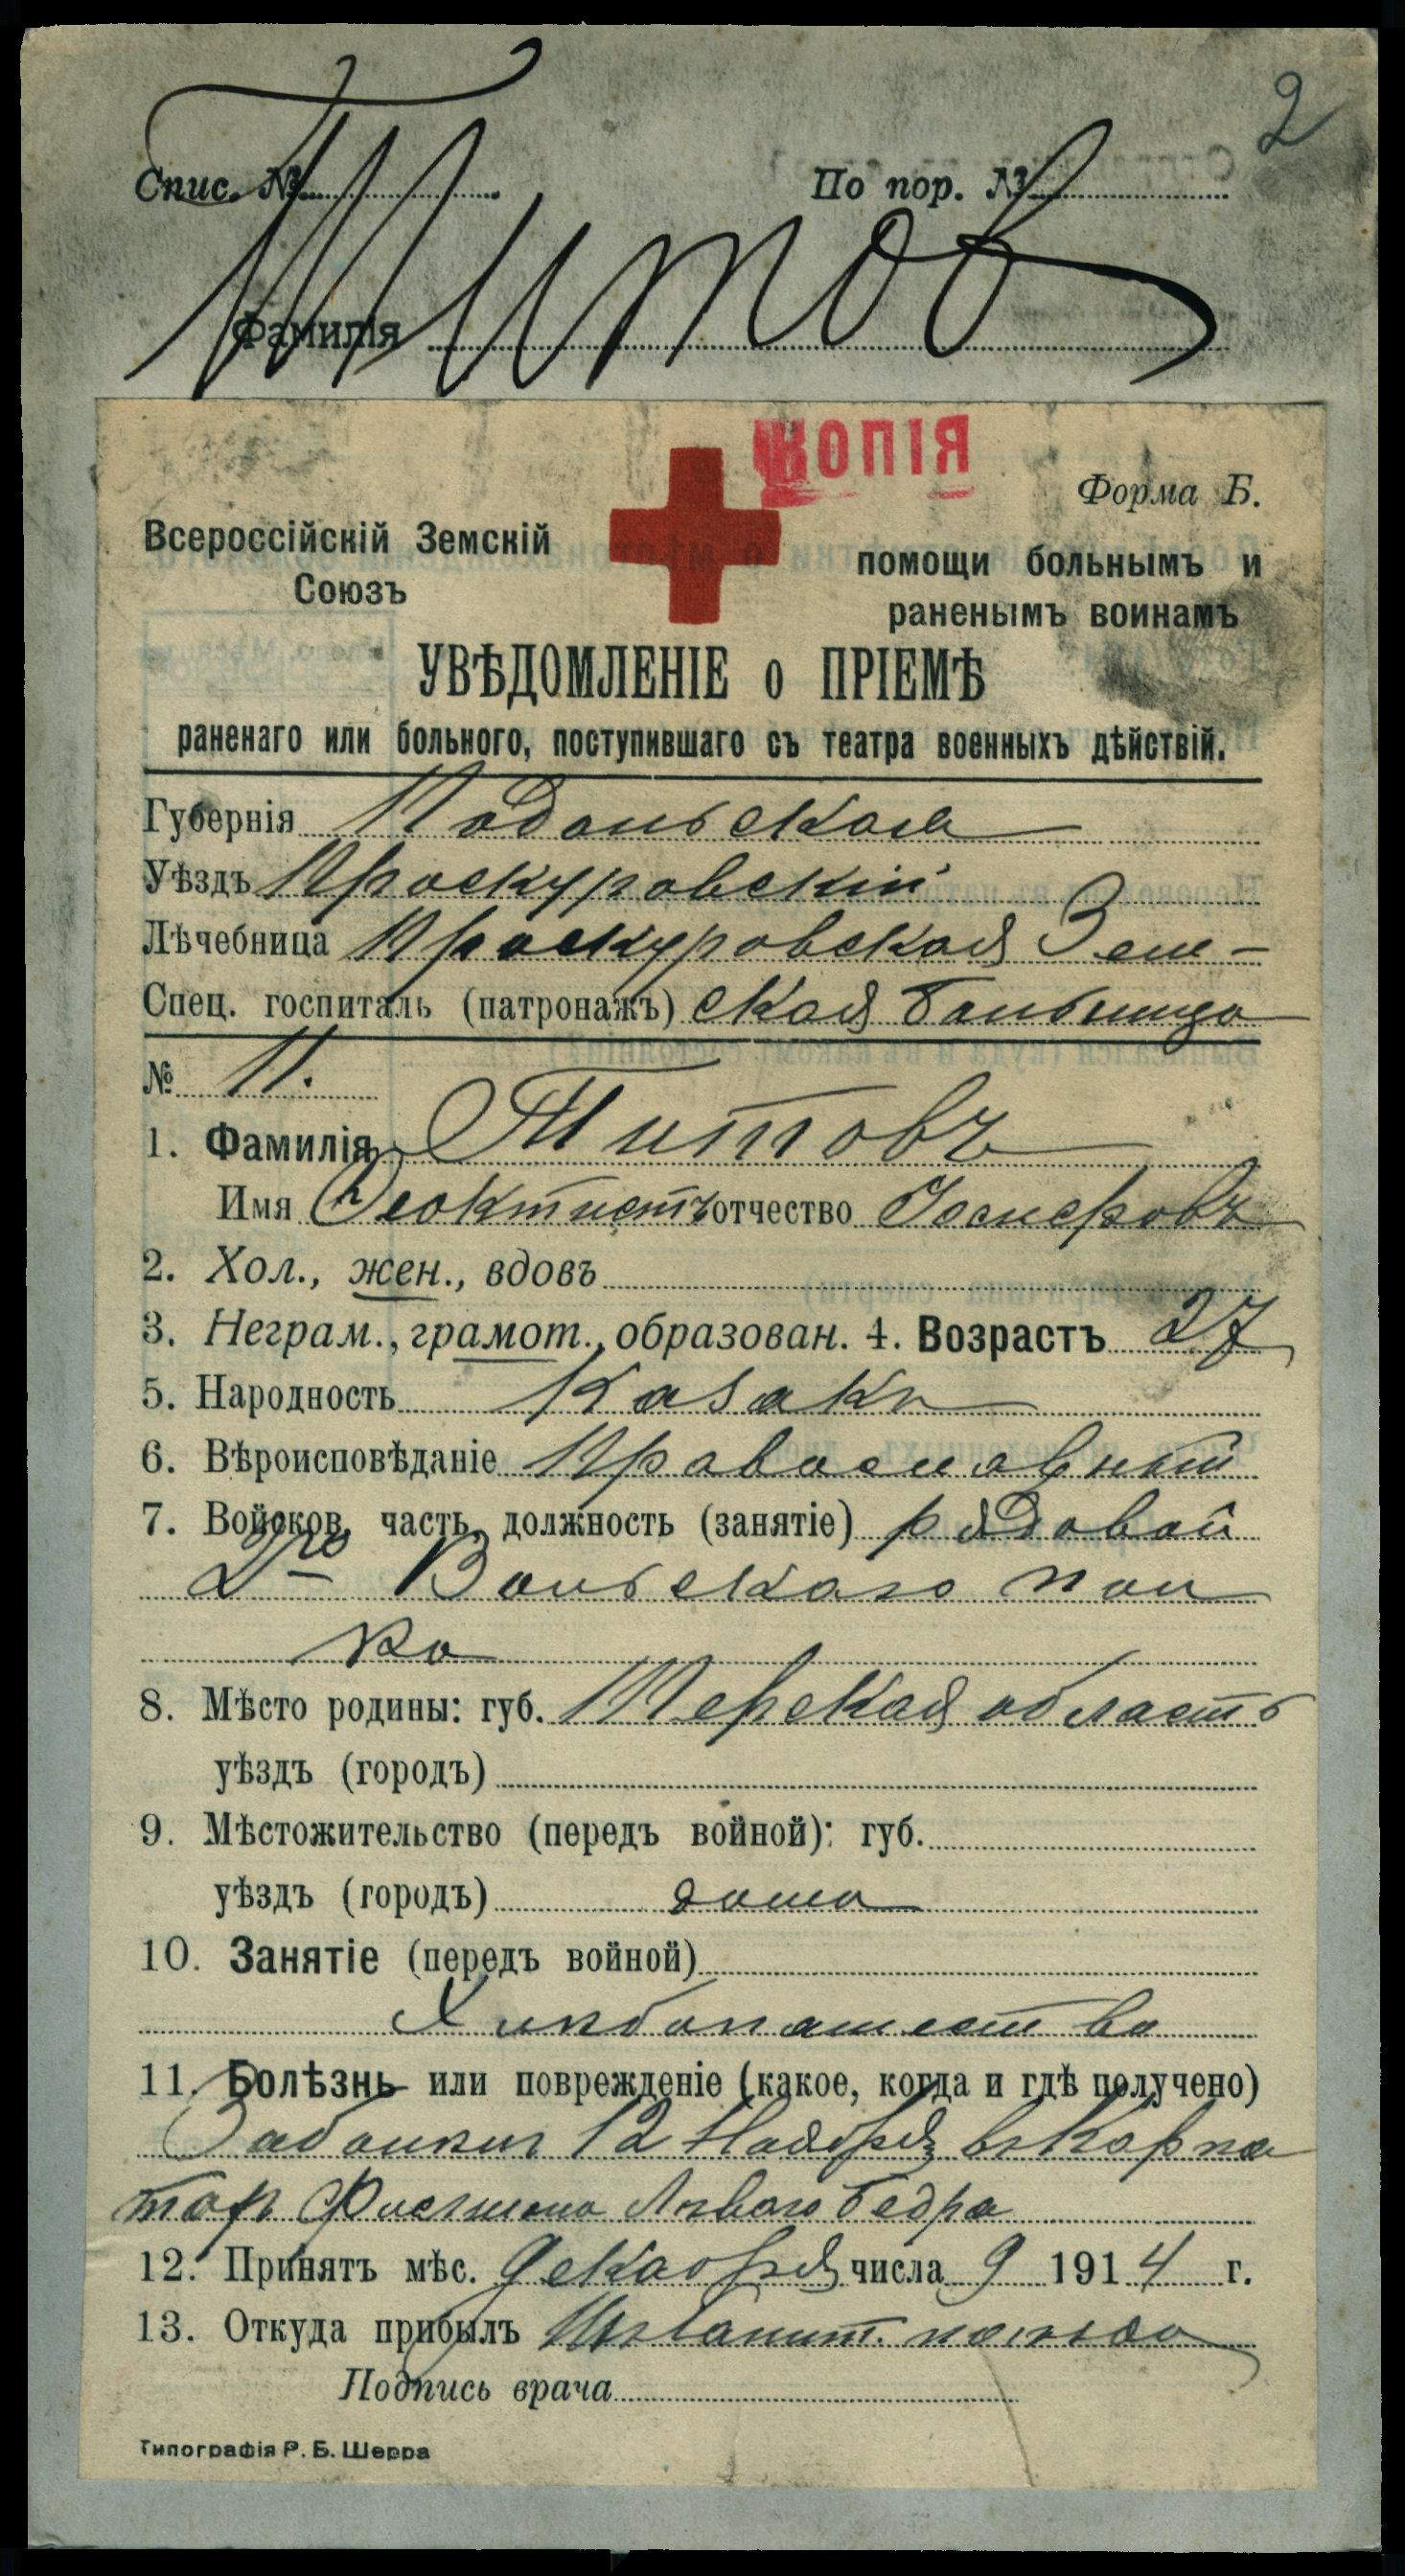 2
Спис. № По пор. №
Титов
Фамилія
КОПІЯ
Форма Б.
Всероссійскій Земскій
Союзъ
помощи больнымъ и
раненымъ воинамъ
УВѢДОМЛЕНІЕ о ПРІЕМѢ
раненаго или больного, поступившаго съ театра военныхъ дѣйствій.
Губернія Подольская
Уѣздъ Проскуровскій
Лѣчебница Проскуровская Зем-
Спец. госпиталь (патронажъ) ская больница
№ 11.
1. Фамилія Титовъ
Имя Феоктистъ отчество
2. Хол., жен., вдовъ
3. Неграм., грамот., образован. 4. Возрастъ 27
5. Народность Казакъ
6. Вѣроисповѣданіе Православный
7. Войсков. часть, должность (занятіе) рядовой
2го Вольскаго пол
ка
8. Мѣсто родины: губ. Терская область
уѣздъ (городъ)
9. Мѣстожительство (передъ войной): губ.
уѣздъ (городъ) дома
10. Занятіе (передъ войной)
Хлѣбопашество
11. Болѣзнь или поврежденіе (какое, когда и гдѣ получено)
Заболѣлъ 12 Ноября въ Карпа
тахъ лѣваго бедра
12. Принятъ мѣс. Декабря числа 9 1914 г.
13. Откуда прибылъ поѣзда
Подпись врача
Типографія Р. Б. Шерра